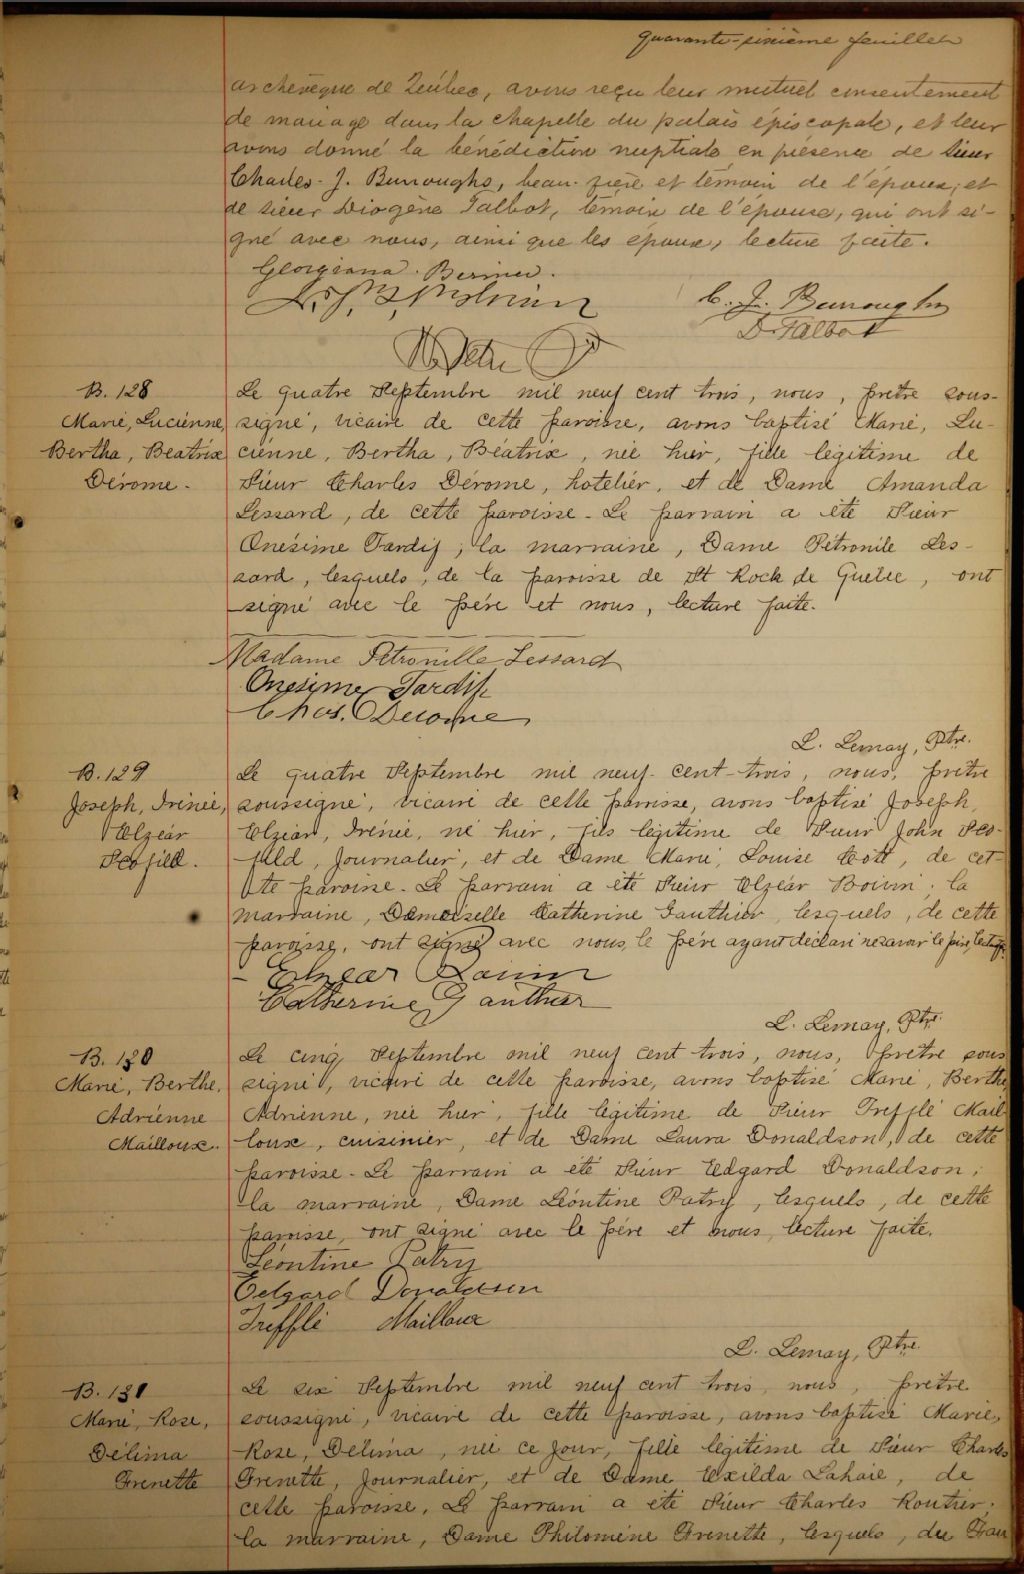 quarante-sixième feuillet
archevêque de Québec, avons reçu leur mutuel consentement
de mariage dans la chapelle du palais épiscopale, et leur
avons donné la bénédiction nuptiale en présence de sieur
Charles-J. Burroughs, beau-frère et témoin de l'époux, et
de sieur Diogène Talbot, témoin de l'épouse, qui ont si-
gné avec nous, ainsi que les époux, lecture faite.
Georgiana Bernier.
C. J. Burroughs
D. Talbot
B. 128
Marie, Lucienne,
Bertha, Béatrix
Dérome.
Le quatre Septembre mil neuf cent trois, nous, prêtre sous-
signé, vicaire de cette paroisse, avons baptisé Marie, Lu-
cienne, Bertha, Béatrix, née hier, fille légitime de
Sieur Charles Dérome, hotelier, et de Dame Amanda
Lessard, de cette paroisse. Le parrain a été Sieur
Onésime Tardif; la marraine, Dame Pétronile Les-
sard, lesquels, de la paroisse de St Rock de Québec, ont
signé avec le père et nous, lecture faite.
Madame Petronille Lessard
Onesime Tardif
Chas. Derome
L. Lemay, Ptre.
B. 129
Joseph, Irénée,
Elzéar
Scofield.
Le quatre Septembre mil neuf-cent-trois, nous, prêtre
soussigné, vicaire de cette paroisse, avons baptisé Joseph,
Elzéar, Irénée, né hier, fils légitime de Sieur John Sco-
field, Journalier, et de Dame Marie, Louise Coté, de cet-
te paroisse. Le parrain a été Sieur Elzéar Boivin; la
marraine, Demoiselle Catherine Gauthier, lesquels, de cette
paroisse, ont signé avec nous, le père ayant déclaré ne savoir le faire,
Elzear Boivin
Catherine Gauthier
L. Lemay, Ptre.
B. 130
Marie, Berthe,
Adrienne
Mailloux.
Le cinq Septembre mil neuf cent trois, nous, prêtre sous
signé, vicaire de cette paroisse, avons baptisé Marie, Berthe
Adrienne, née hier, fille légitime de Sieur Trefflé Mail-
loux, cuisinier, et de Dame Laura Donaldson, de cette
paroisse. Le parrain a été Sieur Edgard Donaldson;
la marraine, Dame Léontine Patry, lesquels, de cette
paroisse, ont signé avec le père et nous, lecture faite.
Léontine Patry
Edgard Donaldson
Trefflé Mailloux
L. Lemay, Ptre.
B. 131
Marie, Rose,
Délima
Frenette
Le six Septembre mil neuf cent trois, nous, prêtre
soussigné, vicaire de cette paroisse, avons baptisé Marie,
Rose, Délima, née ce jour, fille légitime de Sieur Charles
Frenette, Journalier, et de Dame Exilda Lahaie, de
cette paroisse. Le parrain a été Sieur Charles Routier;
la marraine, Dame Philomène Frenette, lesquels, du